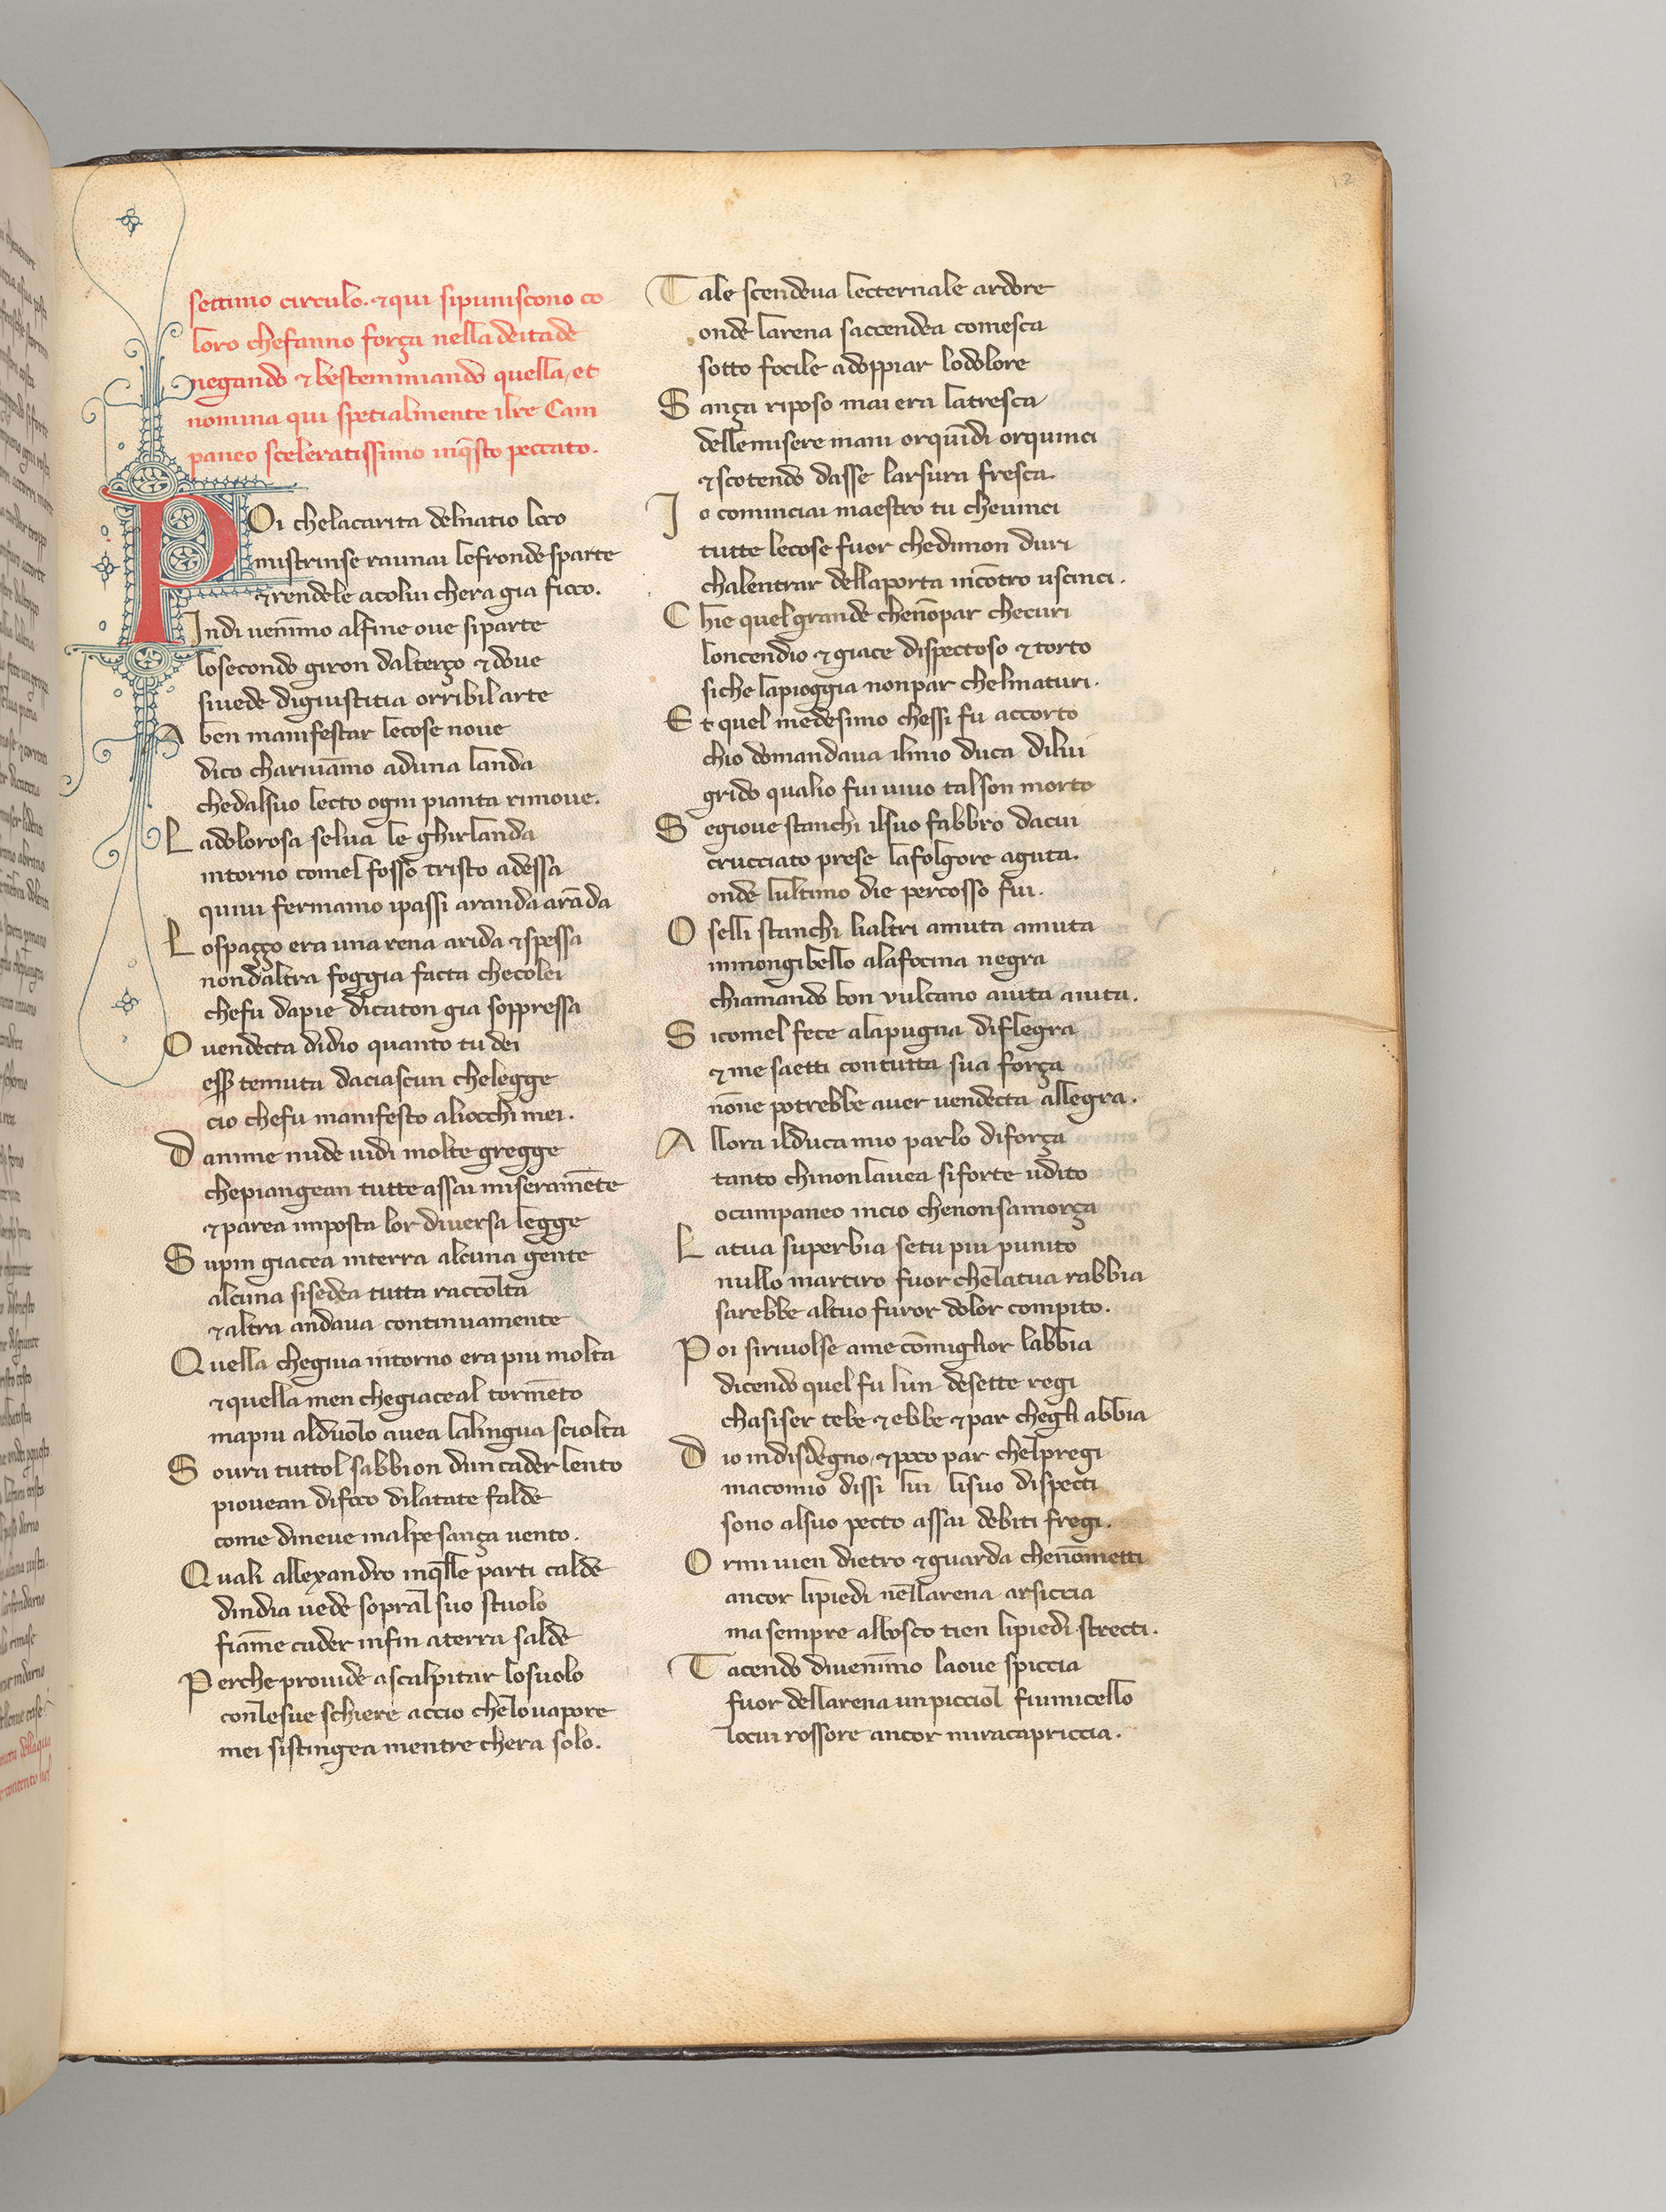 12
settimo circulo. ⁊ qui sipuniscono co
loro chefanno força nella deitade
negando ⁊ bestemmiando quella, et
nomina qui spetialmente ilre Cam
paneo sceleratissimo inq̄sto peccato.
POi chelacarita delnatio loco
mistrinse raunai lefronde sparte
⁊ rendele acolui chera gia fioco.
Indi uenīmo alfine oue siparte
losecondo giron dalterço ⁊ doue
siuede digiustitia orribil arte
A ben manifestar lecose noue
dico chariuāmo aduna landa
chedalsuo lecto ogni pianta rimoue.
L adolorosa selua le ghirlanda
intorno comel fosso tristo adessa
quiui fermamo ipassi aranda arāda
L ospaçço era una rena arida ⁊ spessa
nondaltra foggia facta checolei
chefu dapie dicaton gia soppressa
O uendecta didio quanto tu dei
esser temuta daciascun chelegge
cio chefu manifesto aliocchi mei.
D anime nude uidi molte gregge
chepiangean tutte assai miseramēte
⁊ parea imposta lor diuersa legge
S upin giacea interra alcuna gente
alcuna sisedea tutta raccolta
⁊ altra andaua continuamente
Q uella chegiua intorno era piu molta
⁊ quella men chegiaceal tormēto
mapiu alduolo auea lalingua sciolta
S oura tuttol sabbion dun cader lento
piouean difoco dilatate falde
come dineue inalpe sança uento.
Q uali allexandro inq̄lle parti calde
dindia uede sopral suo stuolo
fiāme cader infin aterra salde
P erche prouide ascalpitar losuolo
conlesue schiere accio chelouapore
mei sistingea mentre chera solo.
T ale scendeua lecternale ardore
onde larena saccendea comesca
sotto focile adoppiar lodolore
S ança riposo mai era latresca
dellemisere mani orquīdi orquinci
⁊ scotendo dasse larsura fresca.
I o cominciai maestro tu cheuinci
tutte lecose fuor chedimon duri
chalentrar dellaporta incōtro uscinci.
C hie quel grande chenōpar checuri
loncendio ⁊ giace dispectoso ⁊ torto
siche lapioggia nonpar chelmaturi.
E t quel medesimo chessi fu accorto
chio domandaua ilmio duca dilui
grido qualio fui uiuo tal son morto
S egioue stanchi ilsuo fabbro dacui
crucciato prese lafolgore aguta.
onde lultimo die percosso fui.
O selli stanchi lialtri amuta amuta
inmongibello alafocina negra
chiamando bon vulcano aiuta aiuta.
S icomel fece alapugna diflegra
⁊ me saetti contutta sua força
nōne potrebbe auer uendecta allegra.
A llora ilduca mio parlo diforça
tanto chinonlauea siforte udito
ocampaneo incio chenonsamorça
L atua superbia setu piu punito
nullo martiro fuor chelatua rabbia
sarebbe altuo furor dolor compito.
P oi siriuolse ame cōmiglior labbia
dicendo quel fu lun desette regi
chasiser tebe ⁊ ebbe ⁊ par chegli abbia
D io indisdegno, ⁊ poco par chelpregi
macomio dissi lui lisuo dispecti
sono alsuo pecto assai debiti fregi.
O rmi uien dietro ⁊ guarda chenōmetti
ancor lipiedi nellarena arsiccia
ma sempre albosco tien lipiedi strecti.
T acendo diuenīmo laoue spiccia
fuor dellarena unpicciol fiumicello
locui rossore ancor miracapriccia.